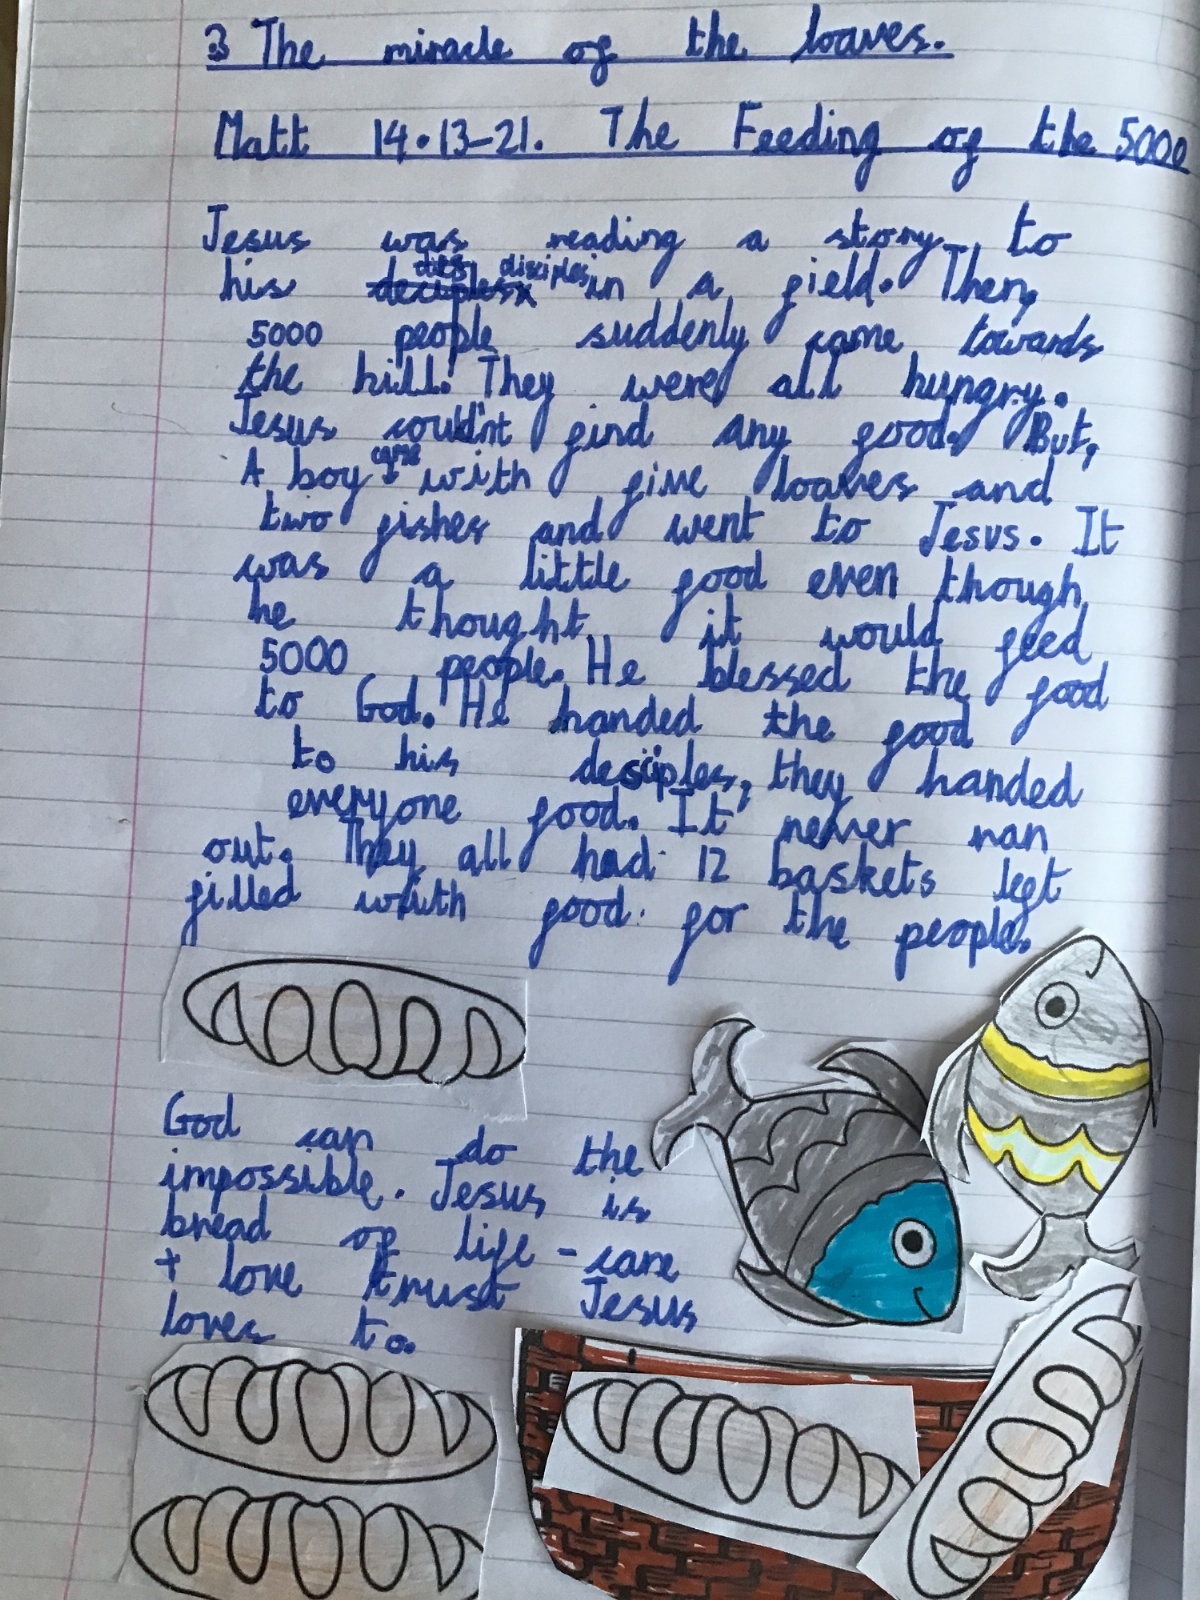 3 The miracle of the loaves.
Matt 14.13-21. The Feeding of the 5000
Jesus was reading a story to
his disciples in a field. Then,
5000 people suddenly came towards
the hill. They were all hungry.
Jesus couldn't find any food. But,
A boy came with five loaves and
two fishes and went to Jesus. It
was a little food even though
he thought it would feed
5000 people. He blessed the food
to God. He handed the food
to his desciples, they handed
everyone food. It never ran
out. They all had 12 baskets left
filled with food for the people.
God can do the
impossible. Jesus is
bread of life - care
+ love trust Jesus
loves to.